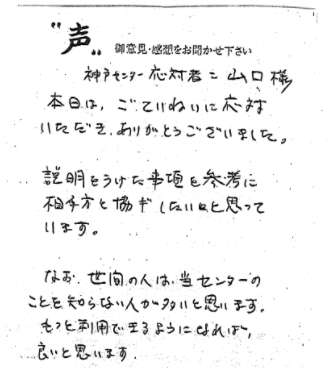 "声" 御意見・感想をお聞かせ下さい
神戸センター 応対者=山口様
本日は、ごていねいに応対
いただき、ありがとうございました。
説明をうけた事項を参考に
相手方と協ギしたいと思って
います。
なお、世間の人は、当センターの
ことを知らない人が多いと思います。
もっと利用できるようになれば、
良いと思います.